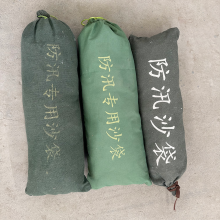 防汛专用沙袋
防汛专用沙袋
防汛沙袋